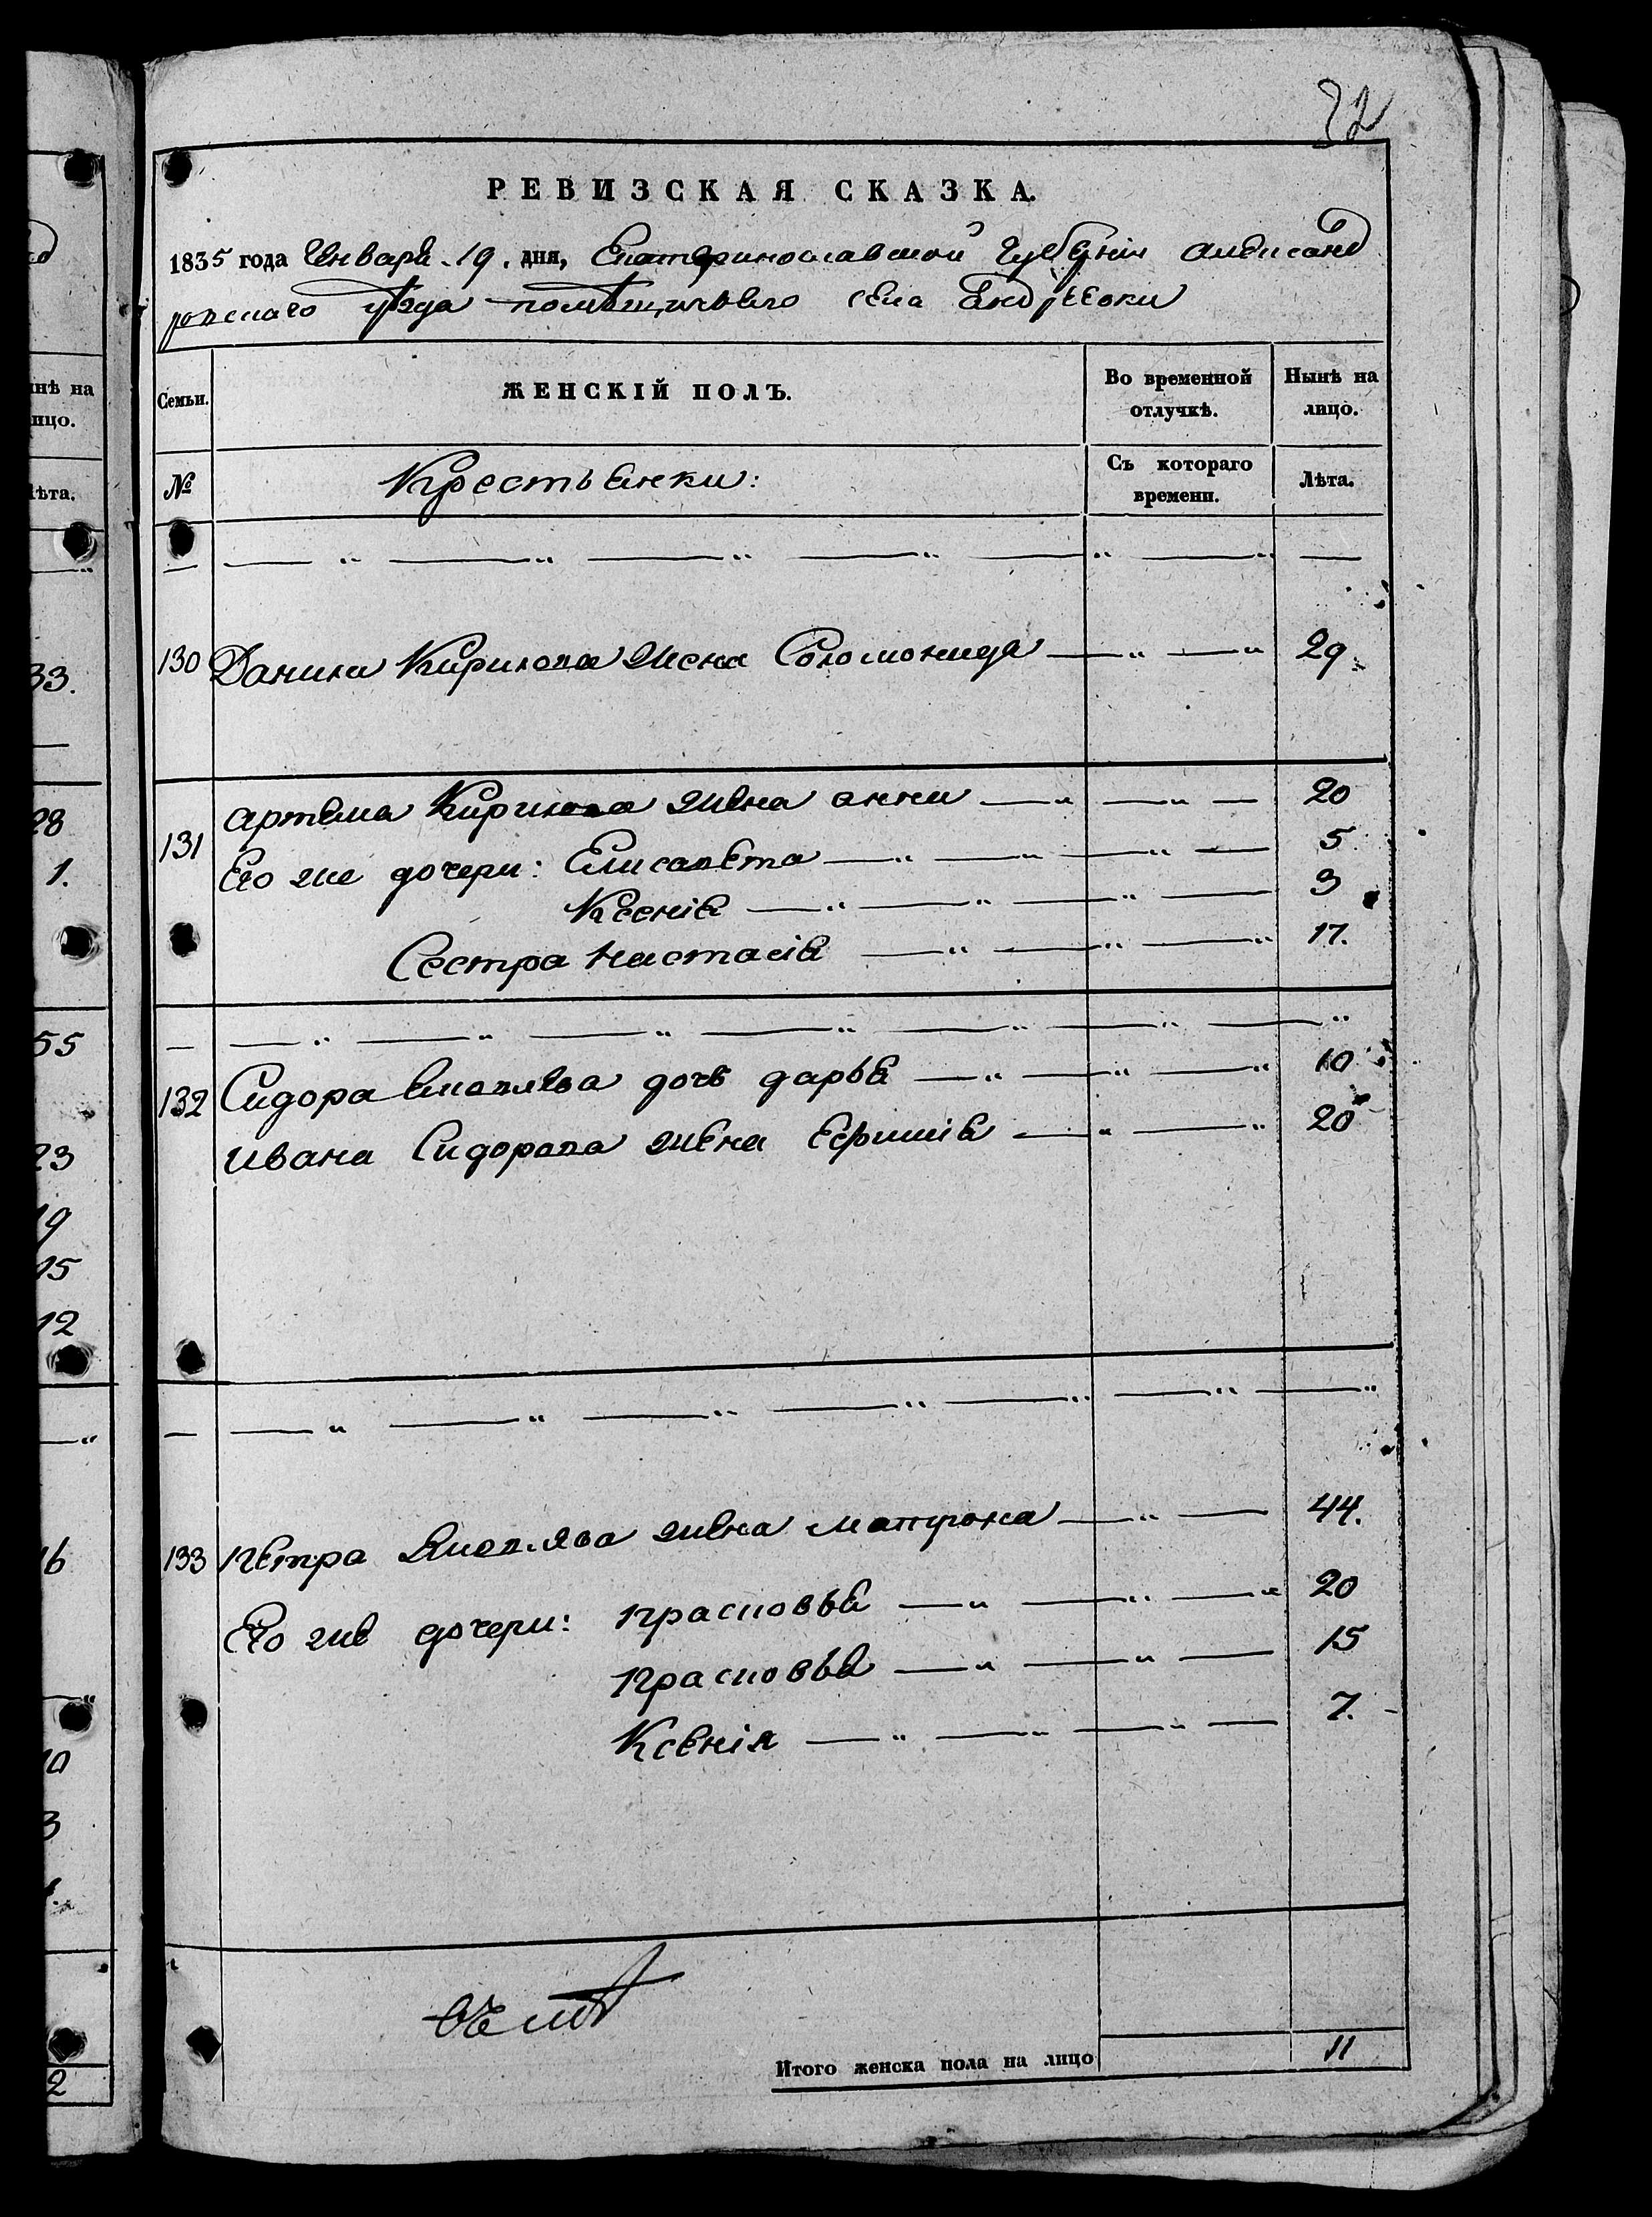 32
РЕВИЗСКАЯ СКАЗКА.
1835 года Генваря 19. дня, Екатеринославской Губерніи Александ
ровскаго уѣзда помѣщичьяго села Андреевки
Семьи. ЖЕНСКІЙ ПОЛЪ. Во временной отлучкѣ. Нынѣ на лицо.
№ Крестьянки: Съ котораго времени. Лѣта.
130 Данила Кирилова жена Соломонида 29
131 Артема Кирилова жена Анна 20
Его же дочери: Елисавета 5
Ксенія 3
Сестра Настасія 17.
132 Сидора дочь Дарья 10
Ивана Сидорова жена Ефимія 20
133 Петра жена Матрона 44.
Его же дочери: Прасковья 20
Прасковья 15
Ксенія 7.
Итого женска пола на лицо 11
нѣ на
ицо.
лѣта.
33.
28
1.
55
23
19
15
12
16
10
3
2